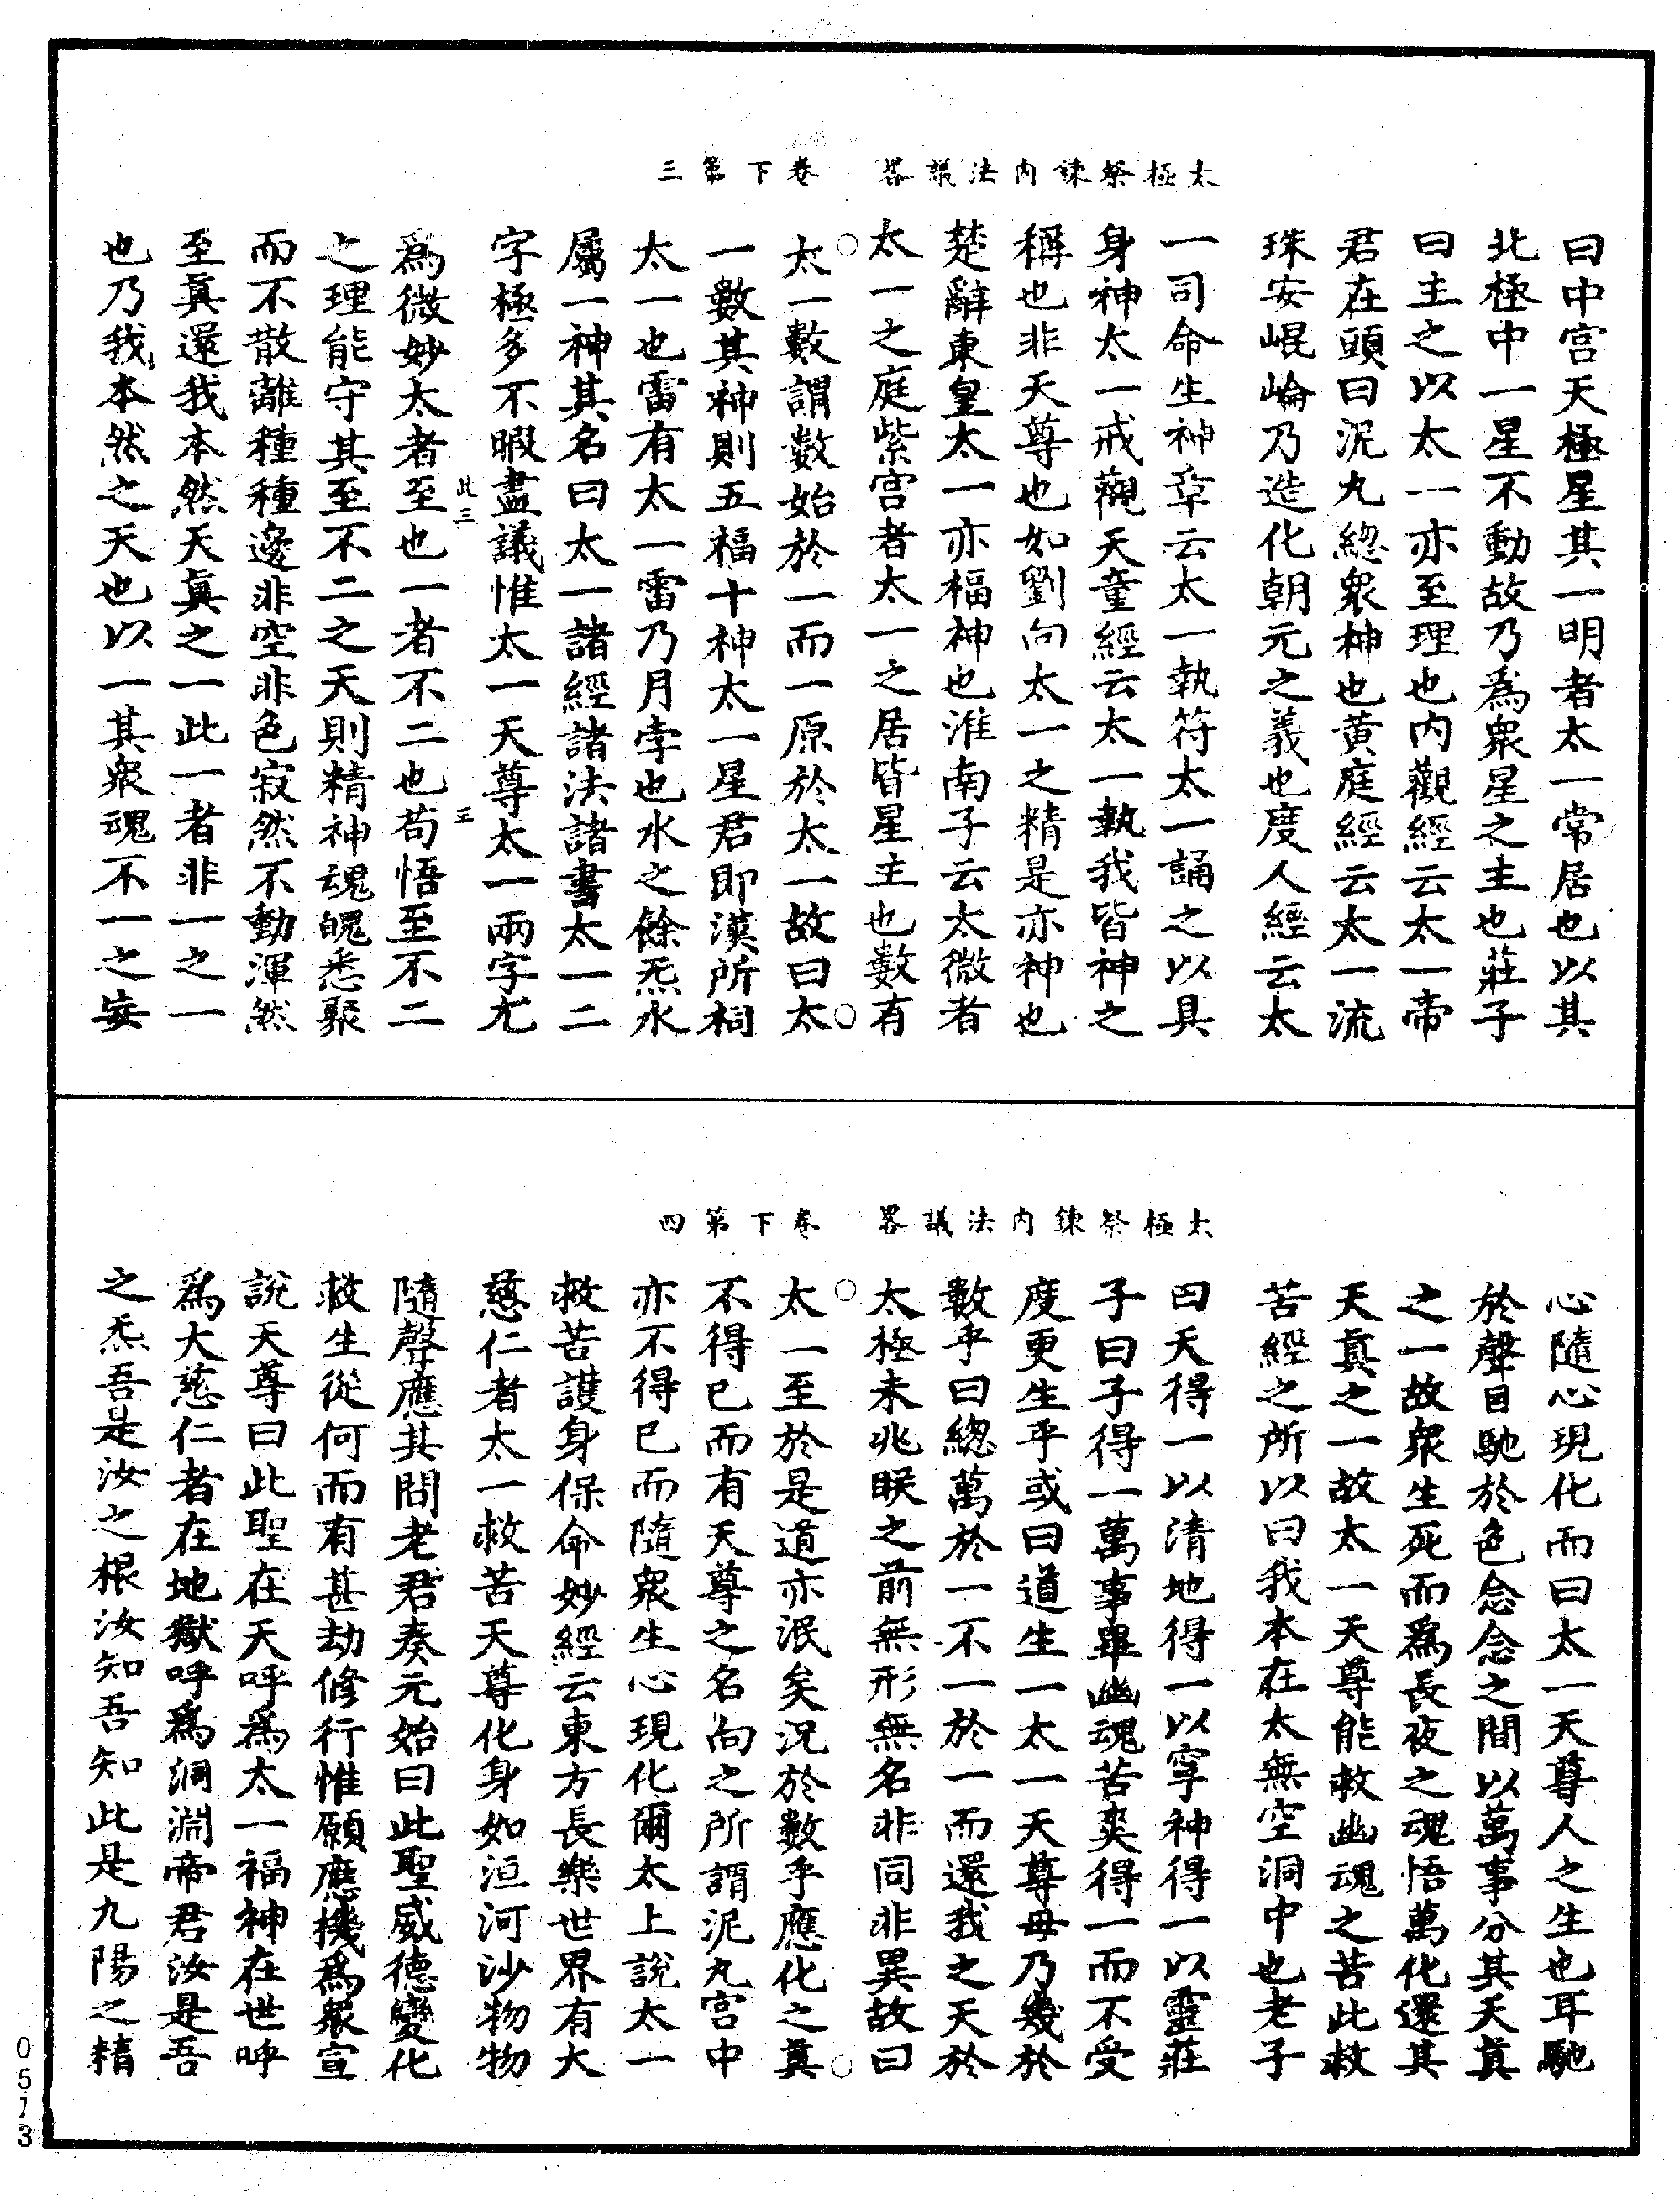 太極祭鍊内法議畧　卷下第三
曰中宫天極星其一明者太一常居也以其
北極中一星不動故乃爲衆星之主也莊子
曰主之以太一亦至理也内觀經云太一帝
君在頭曰泥丸緫衆神也黄庭經云太一流
珠安崐崘乃造化朝元之義也度人經云太
一司命生神章云太一執符太一誦之以具
身神太一戒觀天童經云太一執我皆神之
稱也非天尊也如劉向太一之精是亦神也
楚辭東皇太一亦福神也淮南子云太微者
太一之庭紫宫者太一之居皆星主也數有
太一數謂數始於一而一原於太一故曰太
一數其神則五福十神太一星君即漢所祠
太一也雷有太一雷乃月孛也水之餘炁水
屬一神其名曰太一諸經諸法諸書太一二
字極多不暇盡議惟太一天尊太一兩字尤
此三　王
爲微妙太者至也一者不二也苟悟至不二
之理能守其至不二之天則精神魂魄悉聚
而不散離種種邊非空非色寂然不動渾然
至眞還我本然天眞之一此一者非一之一
也乃我本然之天也以一其衆魂不一之妄
太極祭鍊内法議畧　卷下第四
心隨心現化而曰太一天尊人之生也耳馳
於聲目馳於色念念之間以萬事分其天眞
之一故衆生死而爲長夜之魂悟萬化還其
天眞之一故太一天尊能救幽魂之苦此救
苦經之所以曰我本在太無空洞中也老子
曰天得一以清地得一以寧神得一以靈莊
子曰子得一萬事畢幽魂苦爽得一而不受
度更生乎或曰道生一太一天尊毋乃幾於
數乎曰緫萬於一不一於一而還我之天於
太極未兆眹之前無形無名非同非異故曰
太一至於是道亦泯矣況於數乎應化之眞
不得已而有天尊之名向之所謂泥丸宫中
亦不得已而隨衆生心現化爾太上說太一
救苦護身保命妙經云東方長樂世界有大
慈仁者太一救苦天尊化身如洹河沙物物
隨聲應其問老君奏元始曰此聖威德變化
救生從何而有甚劫修行惟願應機爲衆宣
說天尊曰此聖在天呼爲太一福神在世呼
爲大慈仁者在地獄呼爲洞淵帝君汝是吾
之炁吾是汝之根汝知吾知此是九陽之精
0513